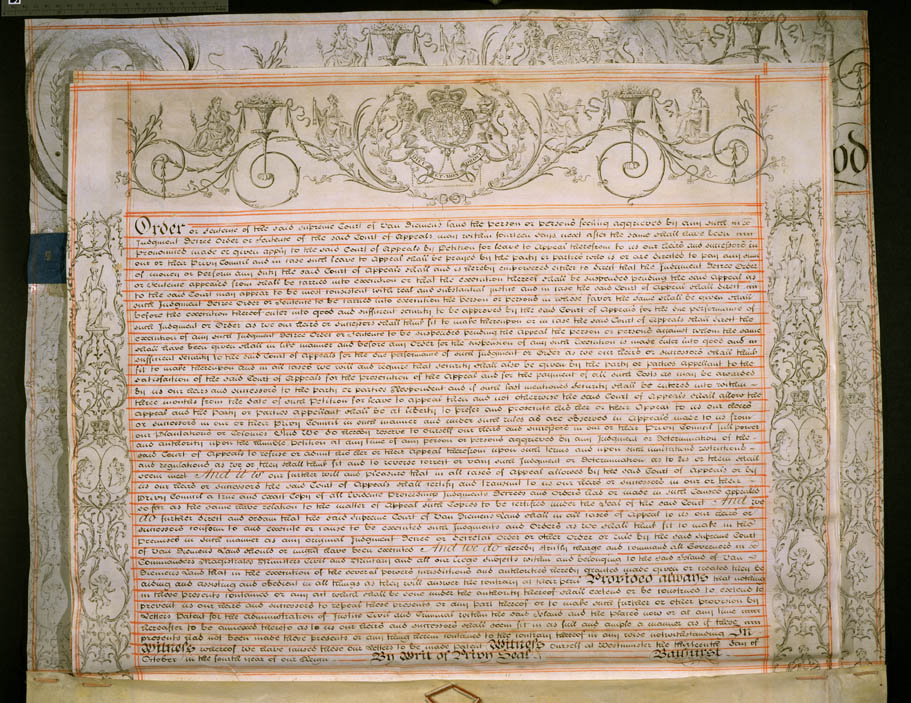 od
Order or Sentence of the said Supreme Court of Van Diemens Land the person or persons feeling aggrieved by any such
Judgment Decree Order or Sentence of the said Court of Appeals may within fourteen days next after the same shall have been
pronounced made or given apply to the said Court of Appeals by Petition for leave to Appeal therefrom to us our Heirs and Successors in
our or their Privy Council and in case such leave to Appeal shall be prayed by the party or parties who is or are directed to pay any sum
of money or perform any duty the said Court of Appeals shall and is hereby empowered either to direct that the Judgment Decree Order
or Sentence appealed from shall be carried into execution or that the execution thereof shall be suspended pending the said Appeal as
to the said Court may appear to be most consistent with real and substantial justice and in case the said Court of Appeal shall direct
such Judgment Decree Order or Sentence to be carried into execution the person or persons in whose favor the same shall be given shall
before the execution thereof enter into good and sufficient security to be approved by the said Court of Appeals for the due performance of
such Judgment or Order as we our Heirs or Successors shall think fit to make thereupon or in case the said Court of Appeals shall direct the
execution of any such Judgment Decree Order or Sentence to be suspended pending the Appeal the person or persons against whom the same
shall have been given shall in like manner and before any Order for the suspension of any such Execution is made enter into good and
sufficient security to the said Court of Appeals for the due performance of such Judgment or Order as we our Heirs or Successors shall think
fit to make thereupon and in all cases we will and require that security shall also be given by the party or parties Appellant to the
satisfaction of the said Court of Appeals for the Prosecution of the Appeal and for the payment of all such Costs as may be awarded
by us our Heirs and Successors to the party or parties Respondent and if such last mentioned Security shall be entered into within
three months from the date of such Petition for leave to appeal then and not otherwise the said Court of Appeals shall allow the
appeal and the Party or parties Appellant shall be at liberty to prefer and prosecute his her or their Appeal to us our Heirs
or Successors in our or their Privy Council in such manner and under such rules as are observed in Appeals made to us from
our Plantations or Colonies And We do hereby reserve to ourself our Heirs and Successors in our or their Privy Council full power
and authority upon the humble Petition at any time of any person or persons aggrieved by any Judgment or Determination of the
said Court of Appeals to refuse or admit his her or their Appeal therefrom upon such terms and upon such limitations restrictions
and regulations as we or they shall think fit and to reverse correct or vary such Judgment or Determination as to us or them shall
seem meet And it is our further will and pleasure that in all cases of Appeal allowed by the said Court of Appeals or by
us our Heirs or Successors the said Court of Appeals shall certify and transmit to us our Heirs or Successors in our or their
Privy Council a true and exact Copy of all Evidence Proceedings Judgments Decrees and Orders had or made in such Causes appealed
so far as the same have relation to the matter of Appeal such Copies to be certified under the Seal of the said Court And we
do further direct and ordain that the said Supreme Court of Van Diemens Land shall in all cases of Appeal to us our Heirs or
Successors conform to and execute or cause to be executed such Judgments and Orders as we shall think fit to make in the
premises in such manner as any original Judgment Decree or Decretal Order or other Order or rule by the said Supreme Court
of Van Diemens Land should or might have been executed And we do hereby strictly charge and command all Governors
Commanders Magistrates Ministers Civil and Military and all our liege Subjects within and belonging to the said Island of Van
Diemens Land that in the execution of the several powers jurisdictions and authorities hereby granted made given or created they be
aiding and assisting and obedient in all things as they will answer the contrary at their peril Provided always that nothing
in these presents contained or any act which shall be done under the authority thereof shall extend or be construed to extend to
prevent us our Heirs and Successors to repeal these presents or any part thereof or to make such further or other provision by
Letters Patent for the administration of Justice Civil and Criminal within the said Island and the places now or at any time
hereafter to be annexed thereto as to us our Heirs and Successors shall seem fit in as full and ample a manner as if these
presents had not been made these presents or any thing therein contained to the contrary thereof in any wise notwithstanding In
Witness whereof we have caused these our Letters to be made patent Witness ourself at Westminster the thirteenth day of
October in the fourth year of our Reign
By Writ of Privy Seal
Bathurst